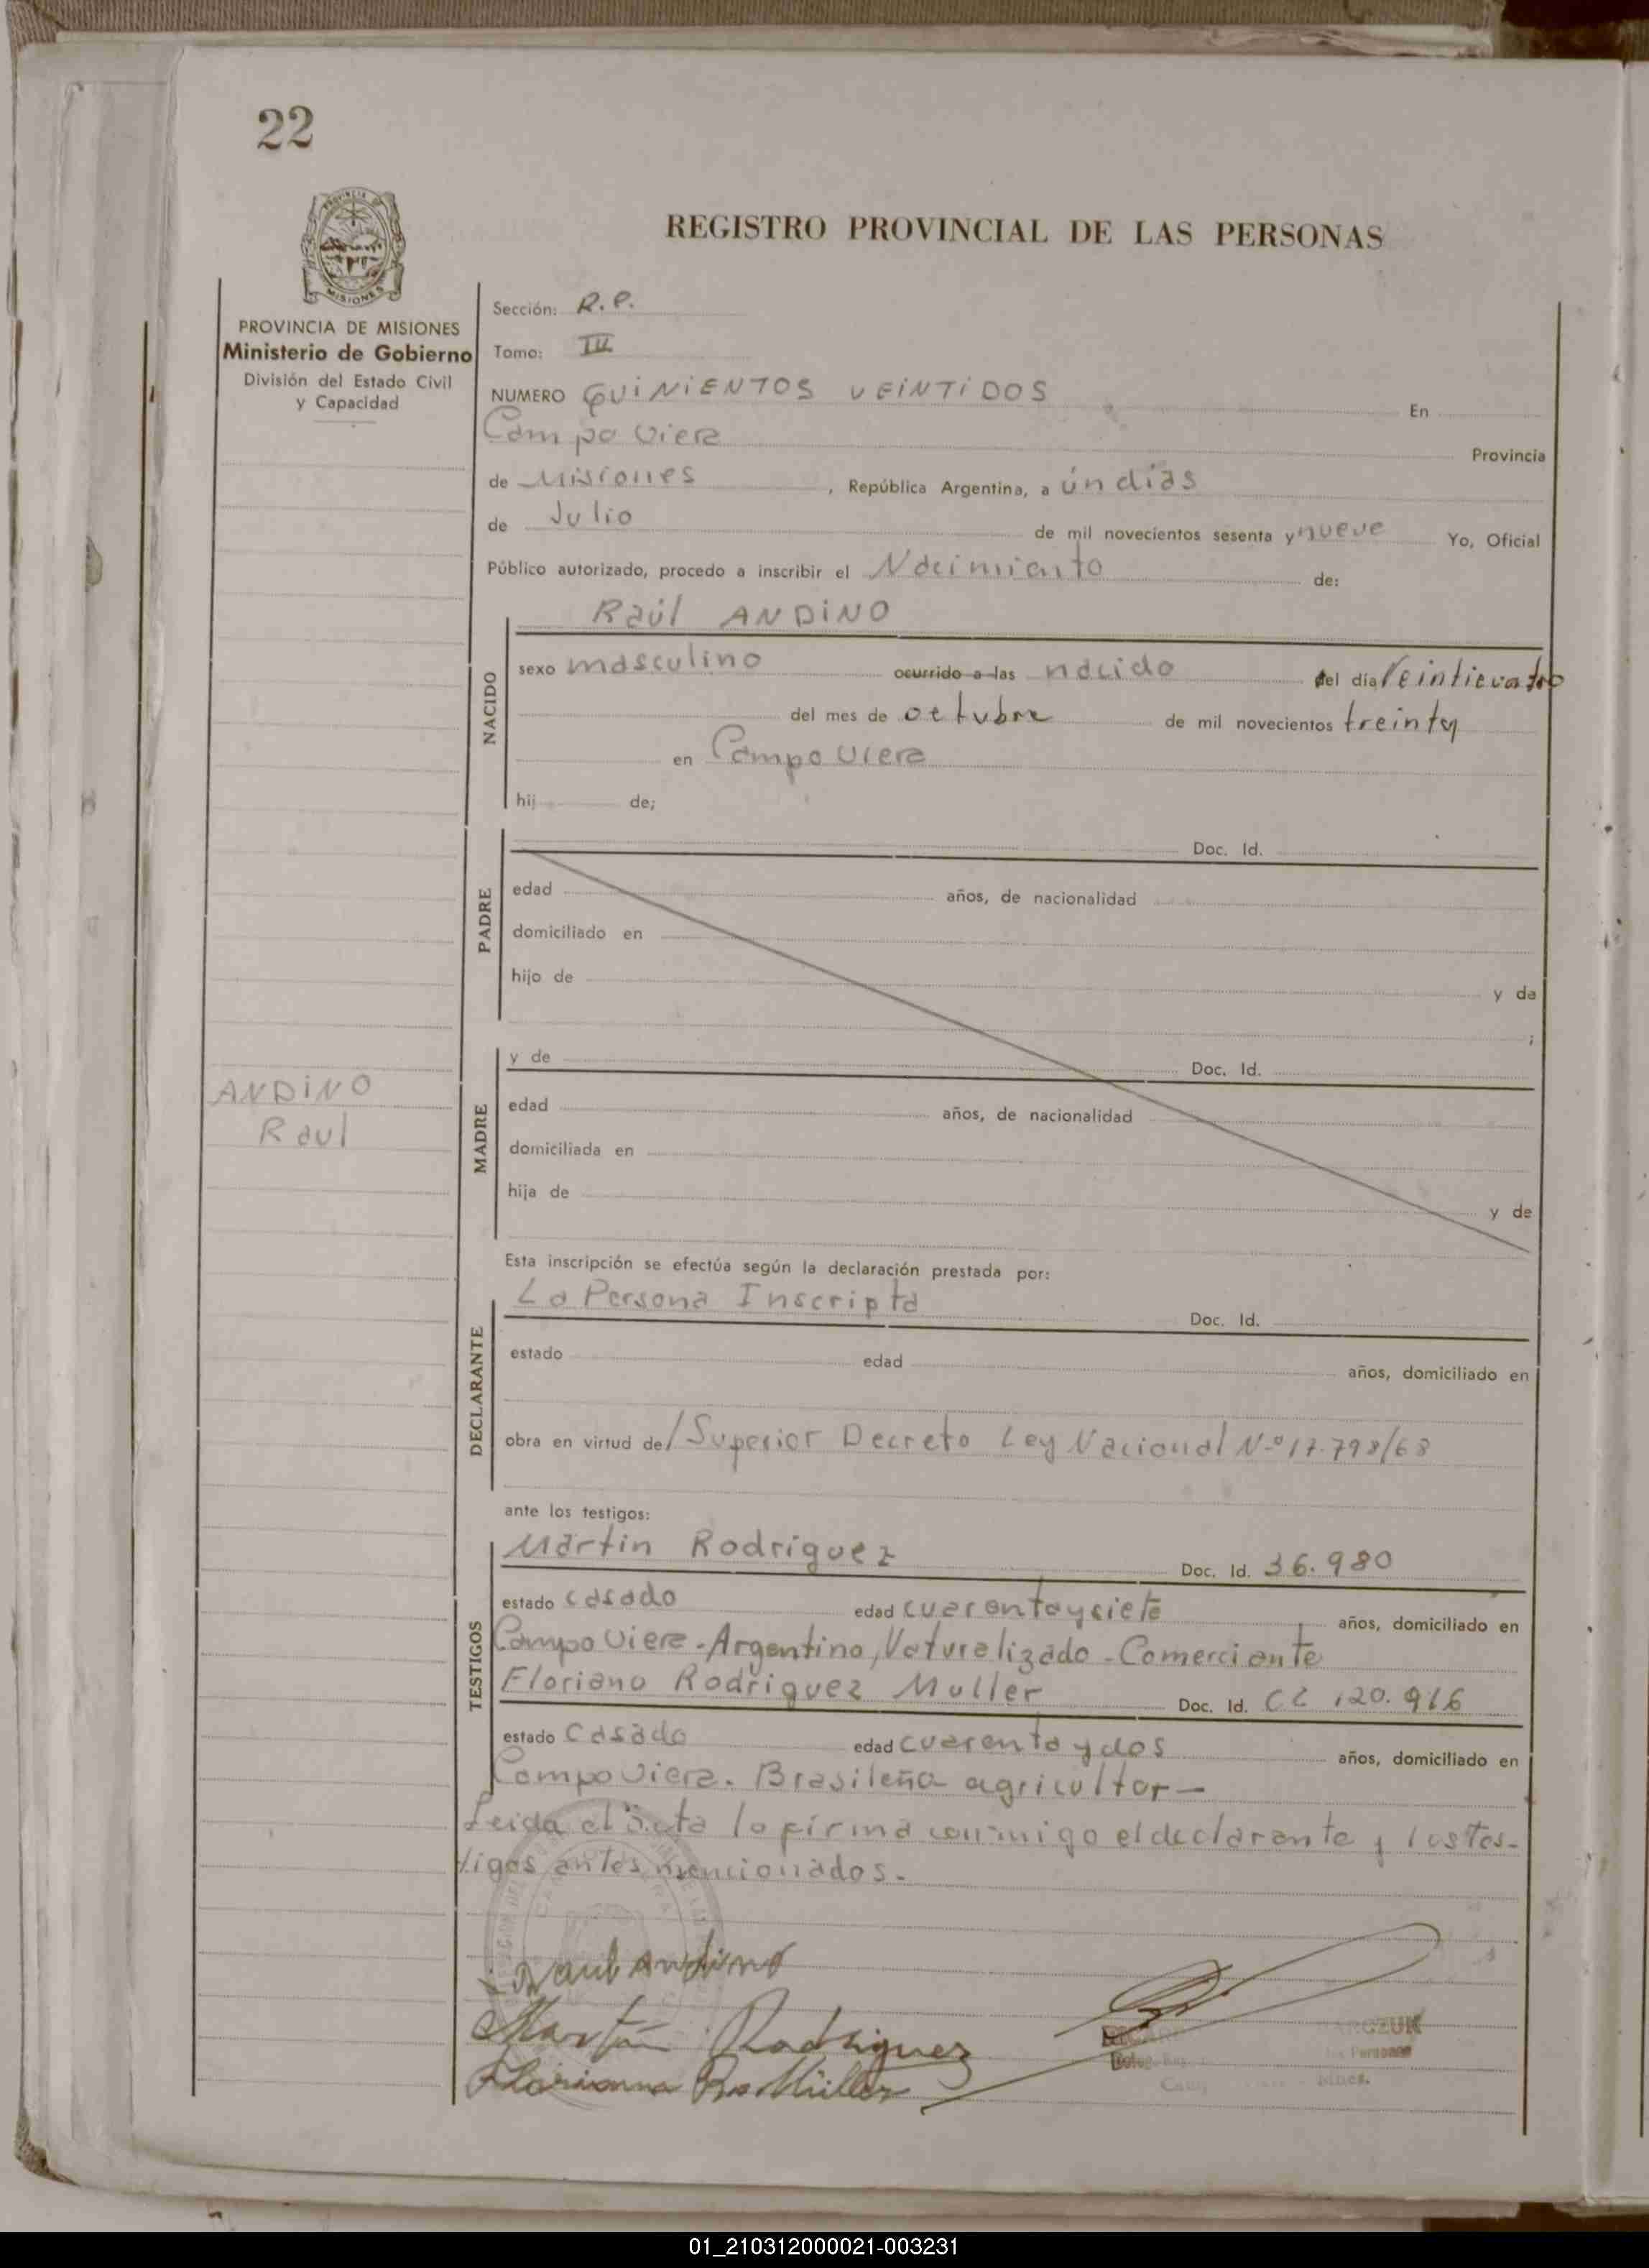 22
PROVINCIA DE MISIONES
Ministerio de Gobierno
División del Estado Civil
y Capacidad
REGISTRO PROVINCIAL DE LAS PERSONAS
Sección: R.P.
Tomo: IV
NUMERO QUINIENTOS VEINTIDOS En
Campo Viera Provincia
de Misiones, República Argentina, a ún días
de Julio de mil novecientos sesenta y nueve Yo, Oficial
Público autorizado, procedo a inscribir el Nacimiento de:
NACIDO
Raúl ANDINO
sexo masculino ocurrido a las nacido del día veinticuatro
del mes de octubre de mil novecientos treinta
en Campo Viera
hij de;
PADRE
Doc. Id.
edad años, de nacionalidad
domiciliado en
hijo de y de
;
ANDINO
Raul
MADRE
y de Doc. Id.
edad años, de nacionalidad
domiciliada en
hija de y de
Esta inscripción se efectúa según la declaración prestada por:
DECLARANTE
La Persona Inscripta Doc. Id.
estado edad años, domiciliado en
obra en virtud de/Superior Decreto Ley Nacional N.º 17.798/68
ante los testigos:
TESTIGOS
Martin Rodriguez Doc. Id. 36.980
estado casado edad cuarenta y siete años, domiciliado en
Campo Viera - Argentino, Naturalizado - Comerciante
Floriano Rodriguez Muller Doc. Id. 120.916
estado casado edad cuarenta y dos años, domiciliado en
Campo Viera. Brasileña agricultor -
Leida el acta la firma conmigo el declarante y los tes-
tigos antes mencionados.-
Raul Andino
Martín Rodriguez
Müller
Personas
01_210312000021-003231